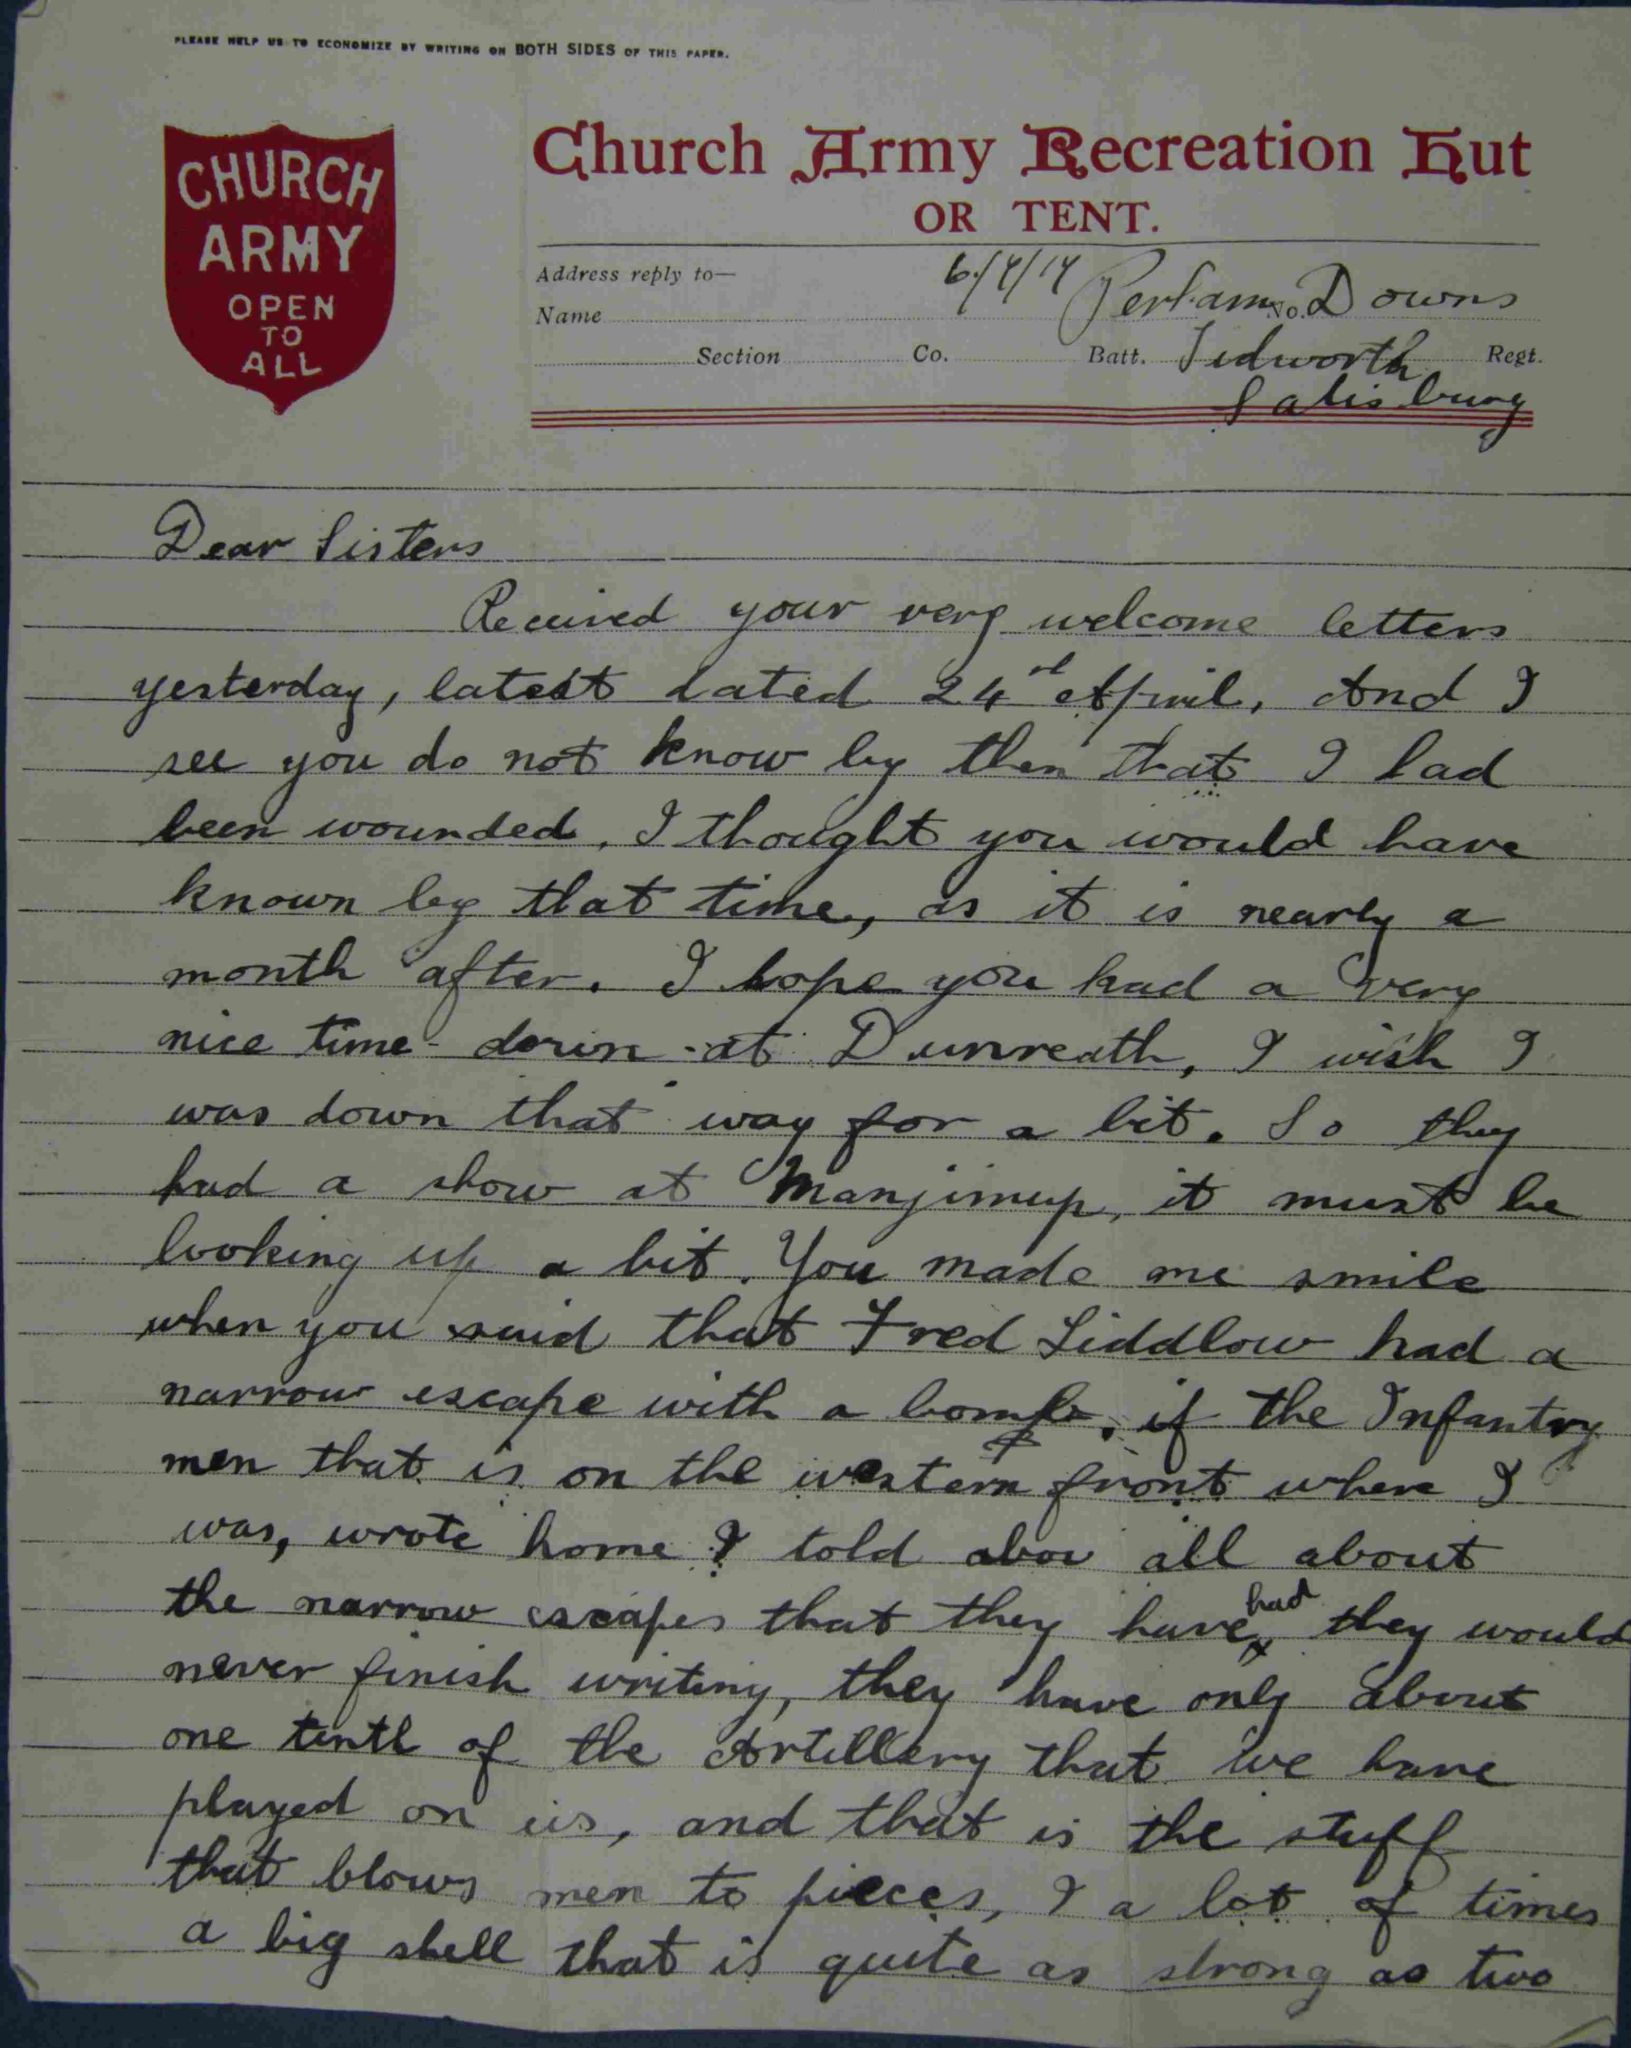 PLEASE HELP US TO ECONOMIZE BY WRITING ON BOTH SIDES OF THIS PAPER.
CHURCH
ARMY
OPEN
TO
ALL
Church Army Recreation Hut
OR TENT.
Address reply to— 6/7/17 Perham Downs
Name No.
Section Co. Batt. Tidworth Regt.
Salisbury
Dear Sisters
Received your very welcome letters
yesterday, latest dated 24th April, And I
see you do not know by then that I had
been wounded, I thought you would have
known by that time, as it is nearly a
month after. I hope you had a very
nice time down at Dunreath, I wish I
was down that way for a bit. So they
had a show at Manjimup, it must be
looking up a bit. You made me smile
when you said that Fred Liddlow had a
narrow escape with a bomb, if the Infantry
men that is on the western front where I
was, wrote home & told abou all about
the narrow escapes that they have had they would
never finish writing, they have only about
one tenth of the Artillery that we have
played on us, and that is the stuff
that blows men to pieces, I a lot of times
a big shell that is quite as strong as two